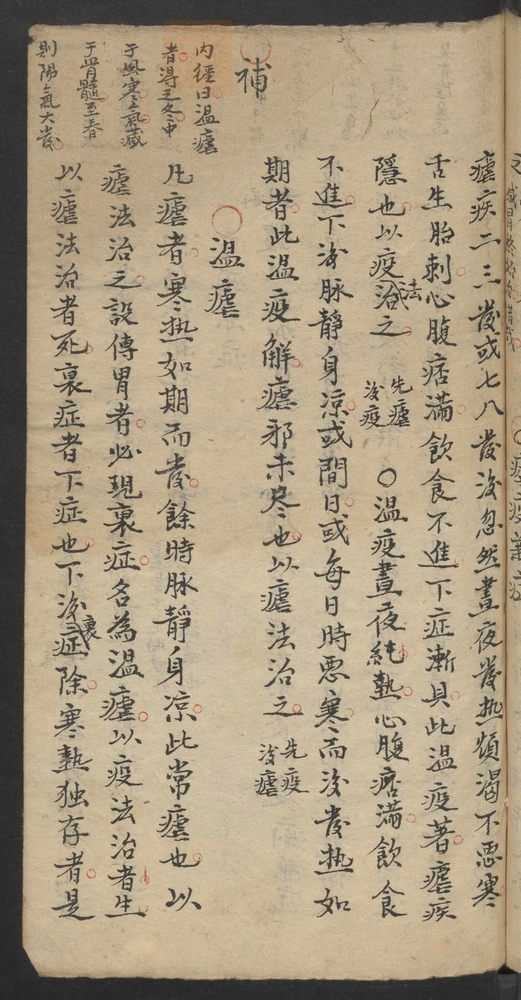 瘧疾二三發或七八發後忽然晝夜發热煩渴不悪寒
舌生胎刺心腹痞滿飲食不進下症漸具此温疫著瘧疾
隱也以疫法治之 先瘧後疫 ○温疫晝夜純熱心腹痞滿飲食
不進下後脉靜身凉或間日或每日時悪寒而後發热如
期者此温疫解瘧邪未尽也以瘧法治之 先疫後瘧
○温瘧
凡瘧者寒热如期而發餘時脉靜身凉此常瘧也以
瘧法治之設傳胃者必現裏症名為温瘧以疫法治者生
以瘧法治者死裏症者下症也下後裏症除寒熱独存者是
補
内徑曰温瘧
者得之冬中
于風寒氣藏
于骨髓至春
則陽氣大發